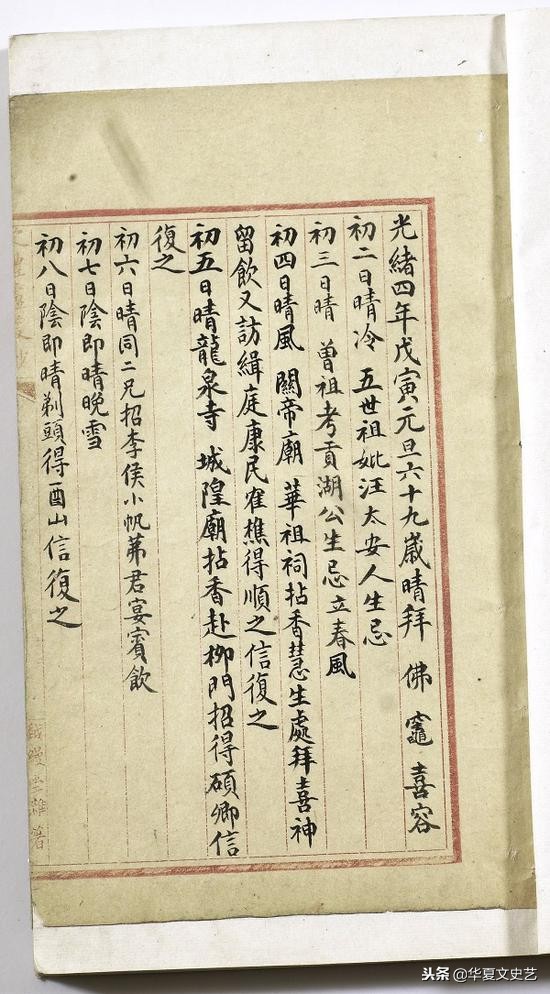 光緒四年戊寅元旦六十九歲晴拜 佛 竈 喜容
初二日晴冷 五世祖妣汪太安人生忌
初三日晴 曾祖考貢湖公生忌立春風
初四日晴風 關帝廟 華祖祠拈香慧生處拜喜神
留飲又訪緝庭康民雈樵得順之信復之
初五日晴龍泉寺 城隍廟拈香赴柳門招得碩卿信
復之
初六日晴同二兄招李侯小帆茀君宴賓飲
初七日陰即晴晚雪
初八日陰即晴剃頭得酉山信復之
頭条 @华夏文史艺